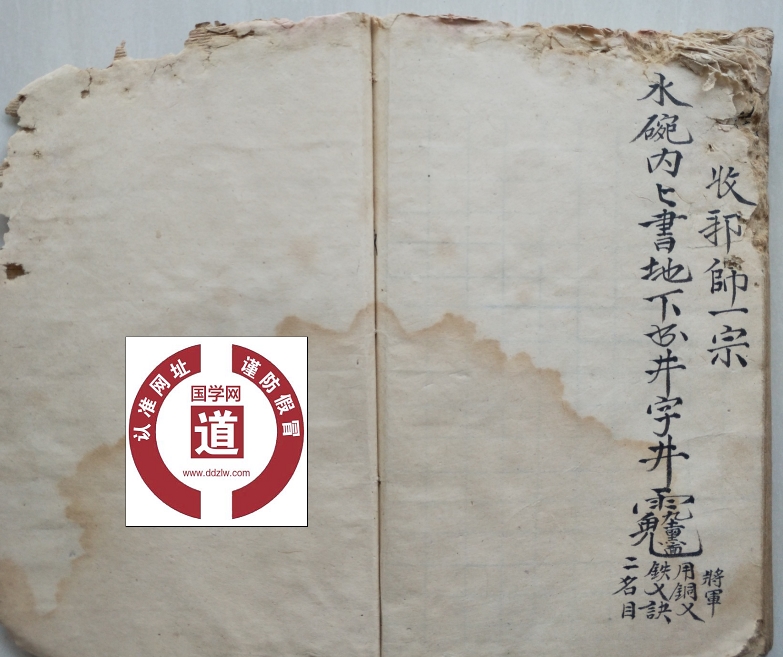 收邪師一宗
水碗内匕書地下书井字井
將軍
用銅乂
鉄乂訣
二名目
认准网址 谨防假冒
国学网
道
www.ddzlw.com